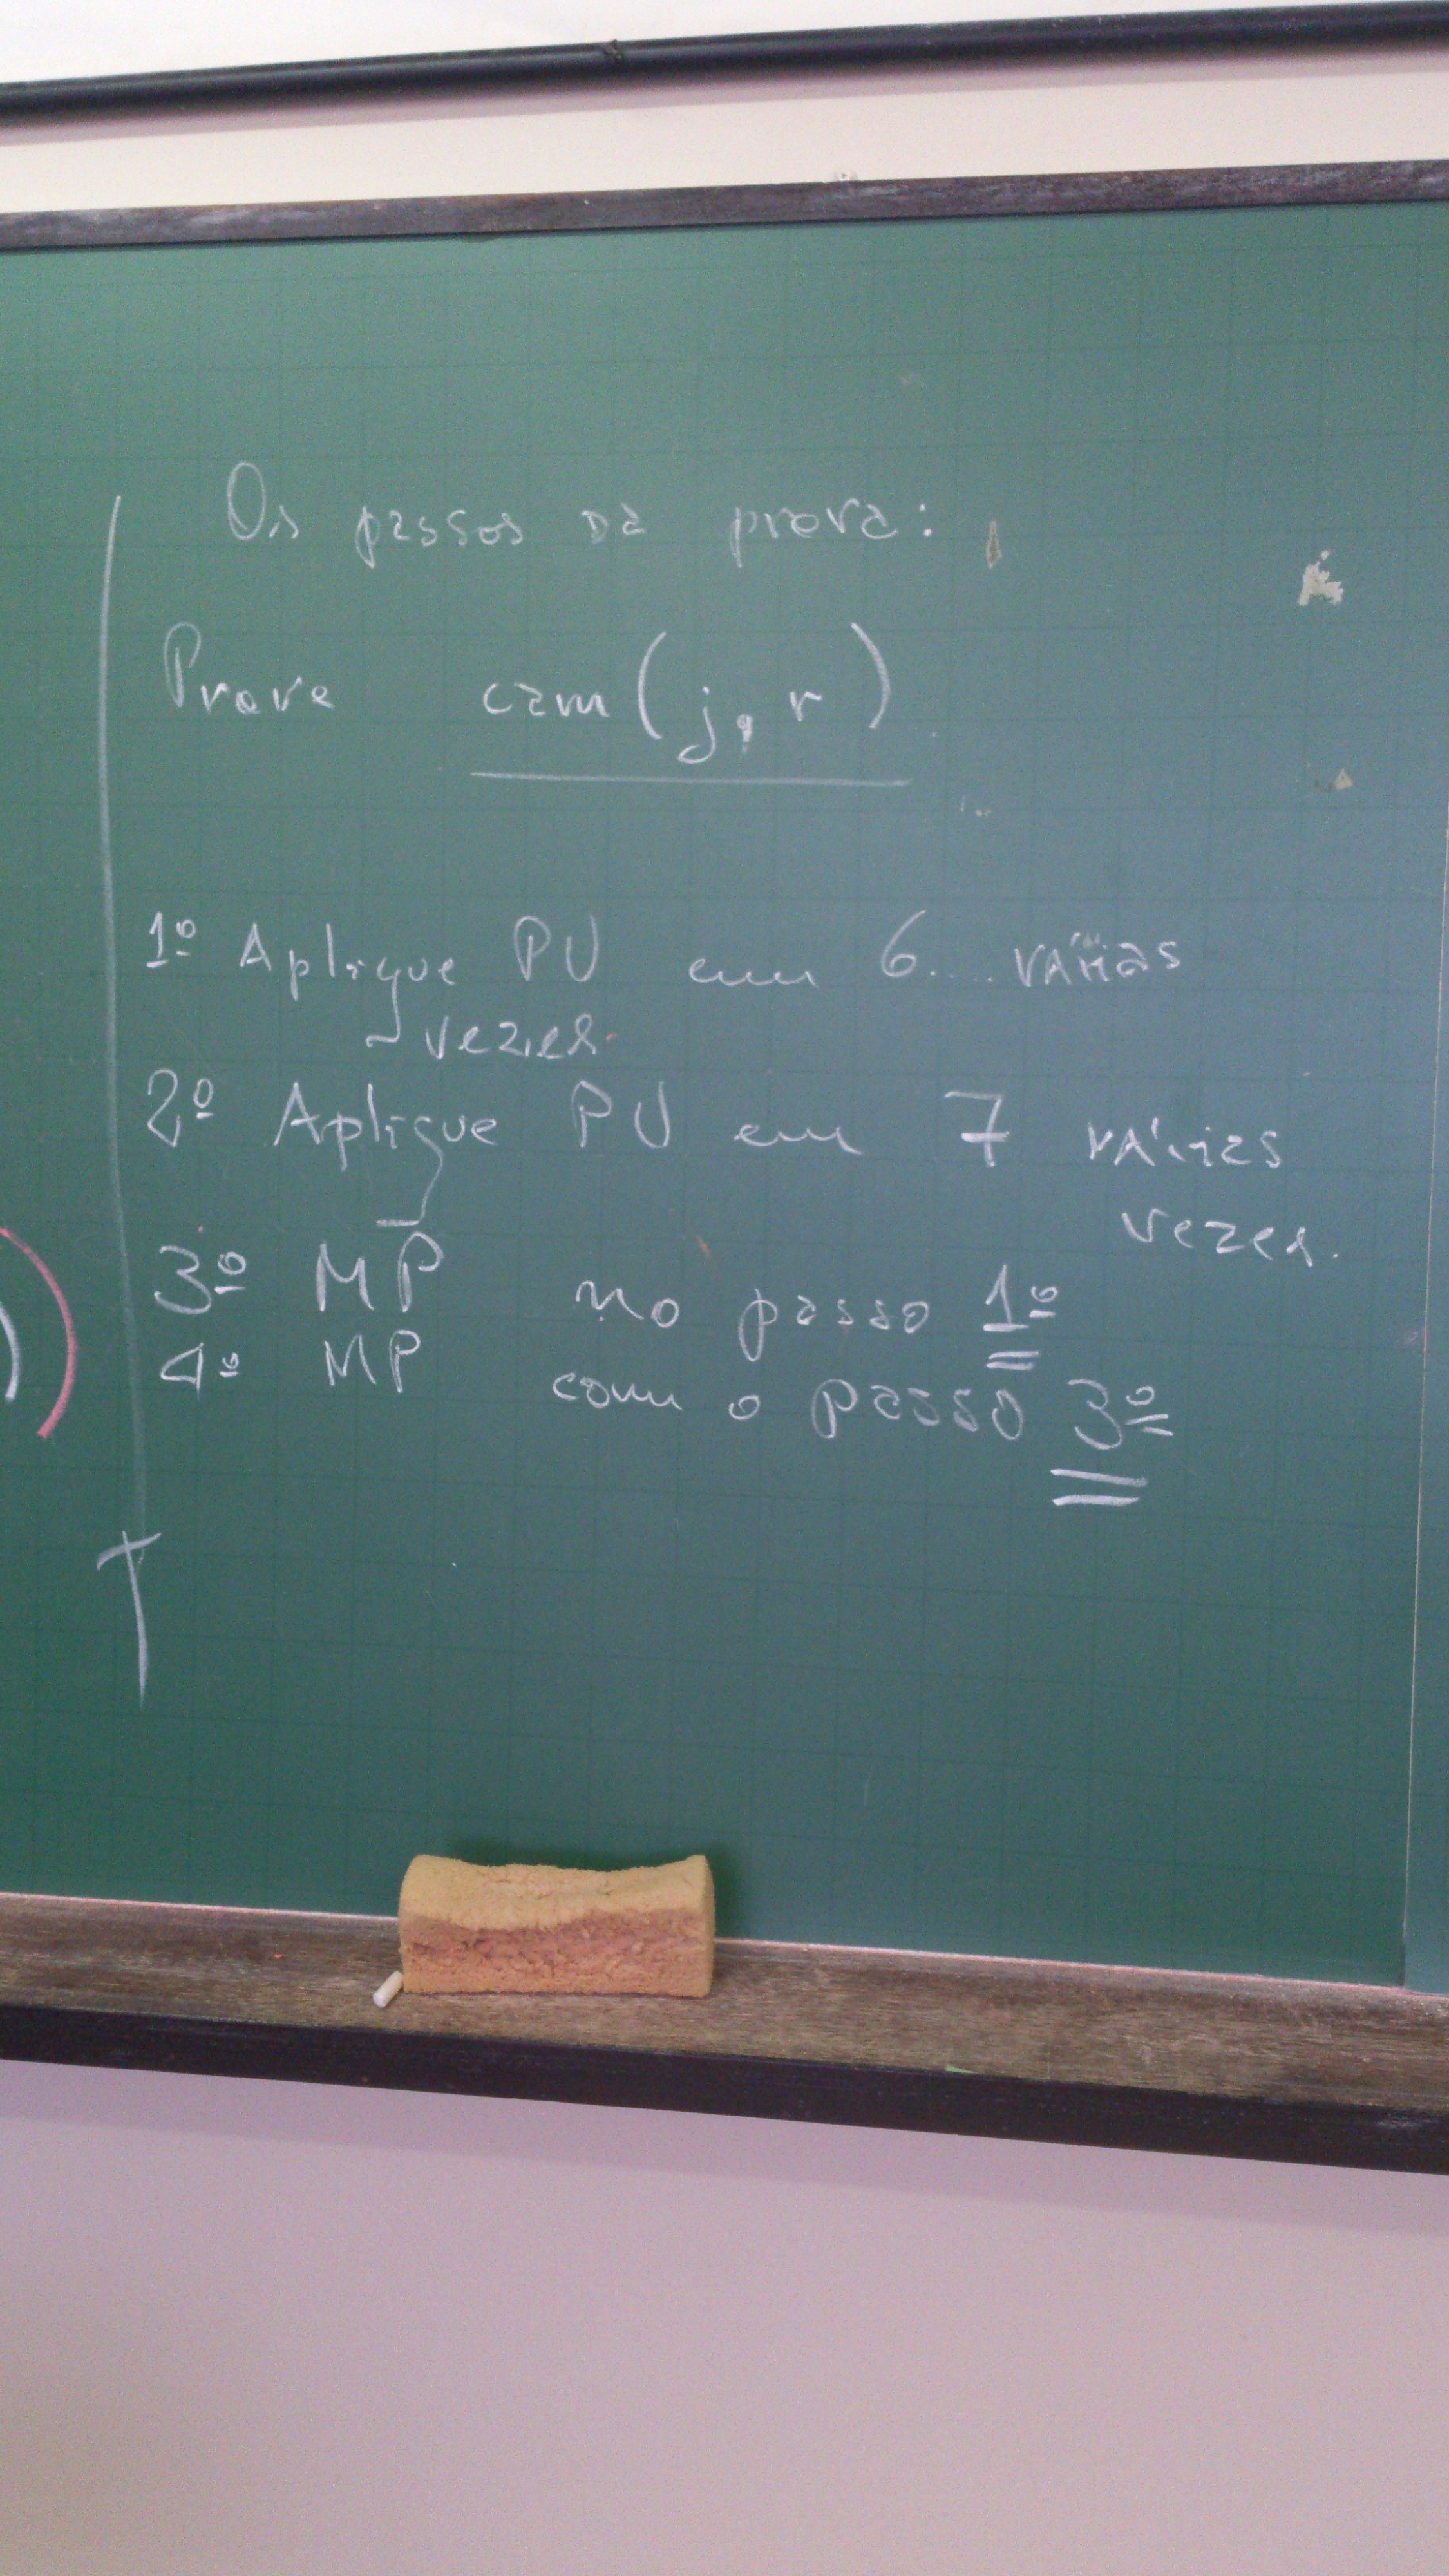 Os passos da prova:
Prove cam(j, r)
1º Aplique PU em 6.... várias
vezes.
2º Aplique PU em 7 várias
vezes.
3º MP no passo 1º
4º MP com o passo 3º